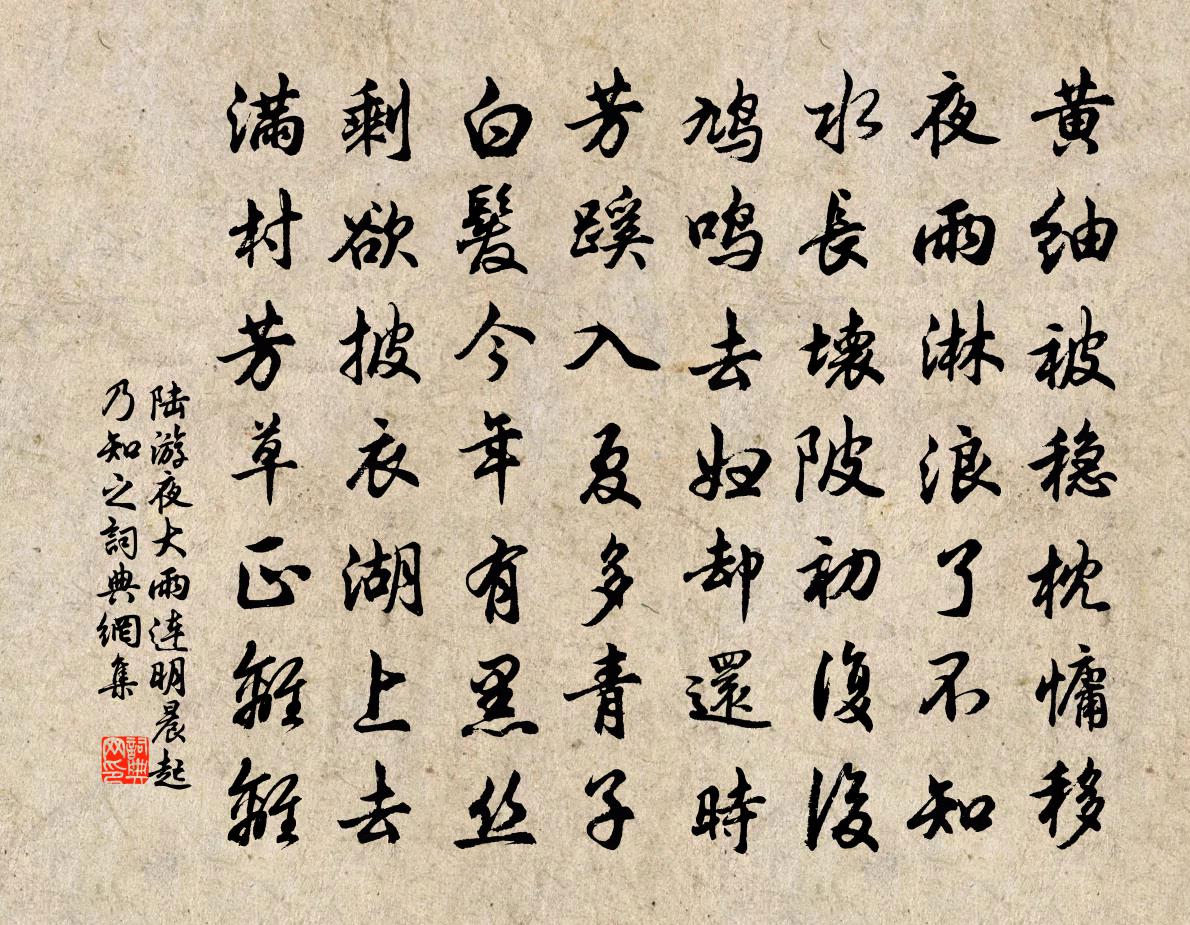 黄紬被稳枕慵移
夜雨淋浪了不知
水長壞陂初復後
鸠鸣去妇却還時
芳蹊入夏多青子
白髮今年有黑丝
剩欲披衣湖上去
满村芳草正離離
陆游夜大雨连明晨起
乃知之詞典網集
詞典
网印